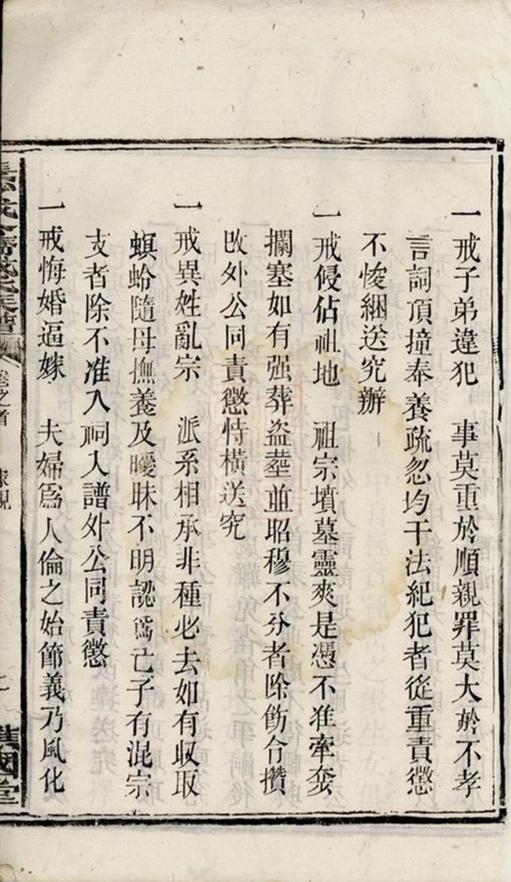 一戒子弟違犯　事莫重於順親罪莫大於不孝
言詞頂撞奉養疏忽均干法紀犯者從重責懲
不悛綑送究辦
一戒侵佔祖地　祖宗墳墓靈爽是憑不准牽套
攔塞如有强葬盗塟並昭穆不分者除飭令攢
改外公同責懲恃橫送究
一戒異姓亂宗　派系相承非種必去如有収取
螟蛉隨母撫養及曖昧不明認爲亡子有混宗
支者除不准入祠入譜外公同責懲
一戒悔婚逼嫁　夫婦爲人倫之始節義乃風化
卷之首
家規